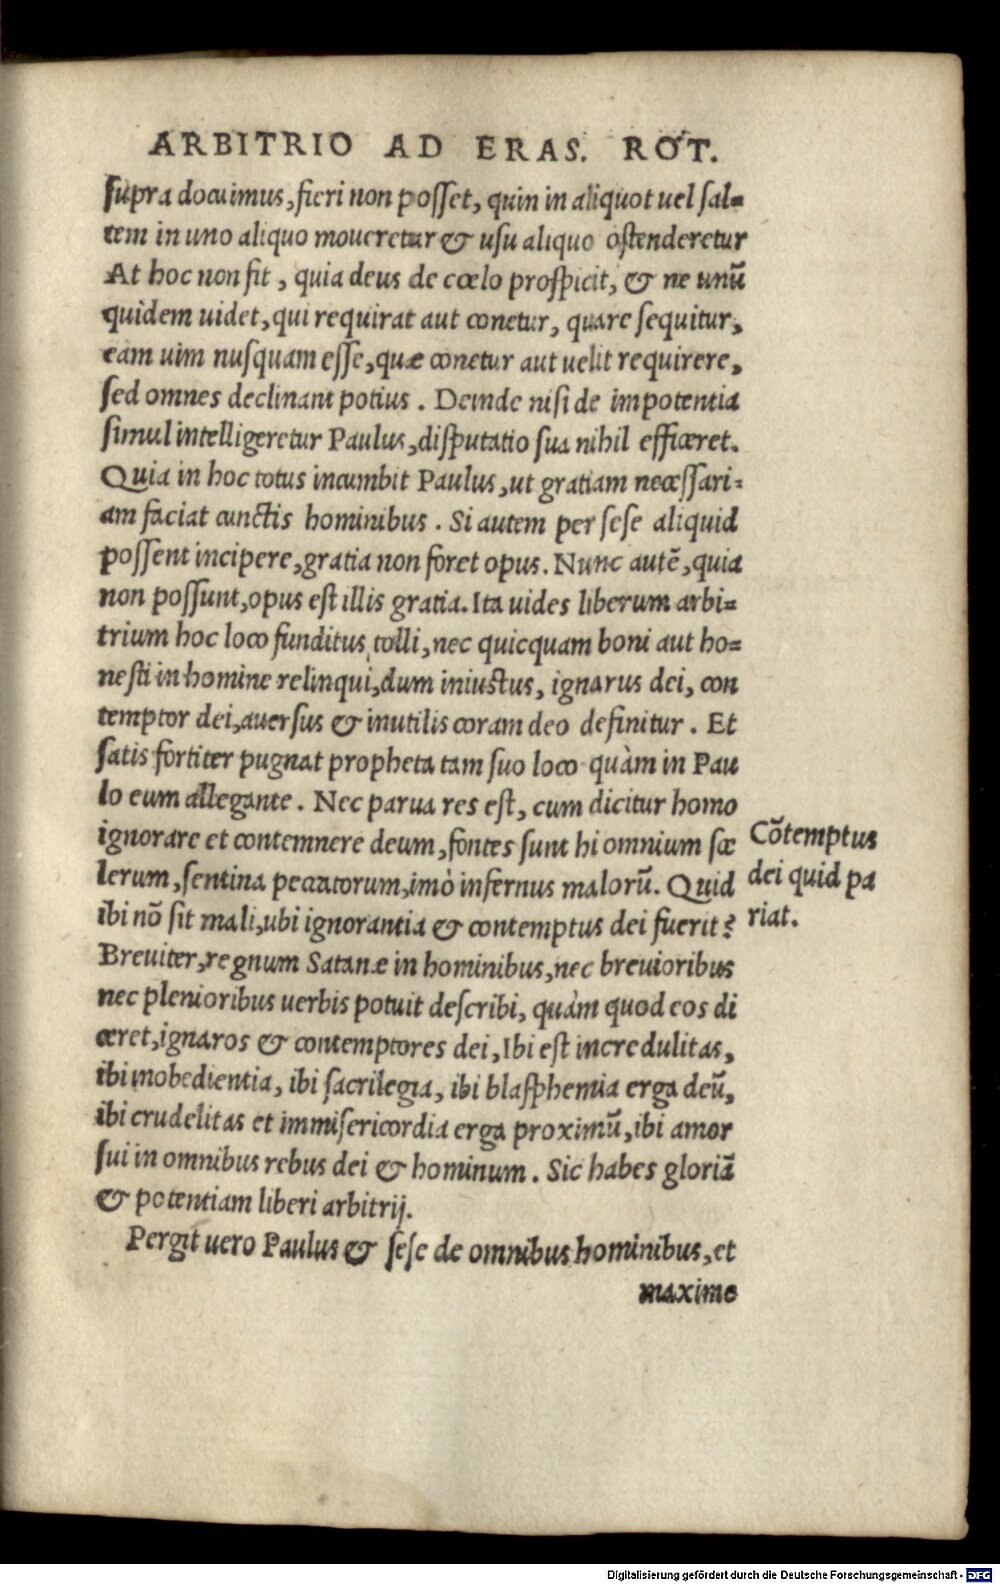 ARBITRIO AD ERAS. ROT.
supra docuimus, fieri non posset, quin in aliquot uel sal=
tem in uno aliquo moueretur & usu aliquo ostenderetur
At hoc non fit, quia deus de cœlo prospicit, & ne unũ
quidem uidet, qui requirat aut conetur, quare sequitur,
eam uim nusquam esse, quæ conetur aut uelit requirere,
sed omnes declinant potius. Deinde nisi de impotentia
simul intelligeretur Paulus, disputatio sua nihil efficeret.
Quia in hoc totus incumbit Paulus, ut gratiam necessari=
am faciat cunctis hominibus. Si autem per sese aliquid
possent incipere, gratia non foret opus. Nunc autẽ, quia
non possunt, opus est illis gratia. Ita uides liberum arbi=
trium hoc loco funditus tolli, nec quicquam boni aut ho=
nesti in homine relinqui, dum iniustus, ignarus dei, con
temptor dei, auersus & inutilis coram deo definitur. Et
satis fortiter pugnat propheta tam suo loco quàm in Pau
lo eum allegante. Nec parua res est, cum dicitur homo
ignorare et contemnere deum, fontes sunt hi omnium sce
lerum, sentina peccatorum, imò infernus malorũ. Quid
ibi nõ sit mali, ubi ignorantia & contemptus dei fuerit?
Breuiter, regnum Satanæ in hominibus, nec breuioribus
nec plenioribus uerbis potuit describi, quàm quod eos di
ceret, ignaros & contemptores dei, Ibi est incredulitas,
ibi inobedientia, ibi sacrilegia, ibi blasphemia erga deũ,
ibi crudelitas et immisericordia erga proximũ, ibi amor
sui in omnibus rebus dei & hominum. Sic habes gloriã
& potentiam liberi arbitrij.
Pergit uero Paulus & sese de omnibus hominibus, et
maxime
Cõtemptus
dei quid pa
riat.
Digitalisierung gefördert durch die Deutsche Forschungsgemeinschaft - DFG